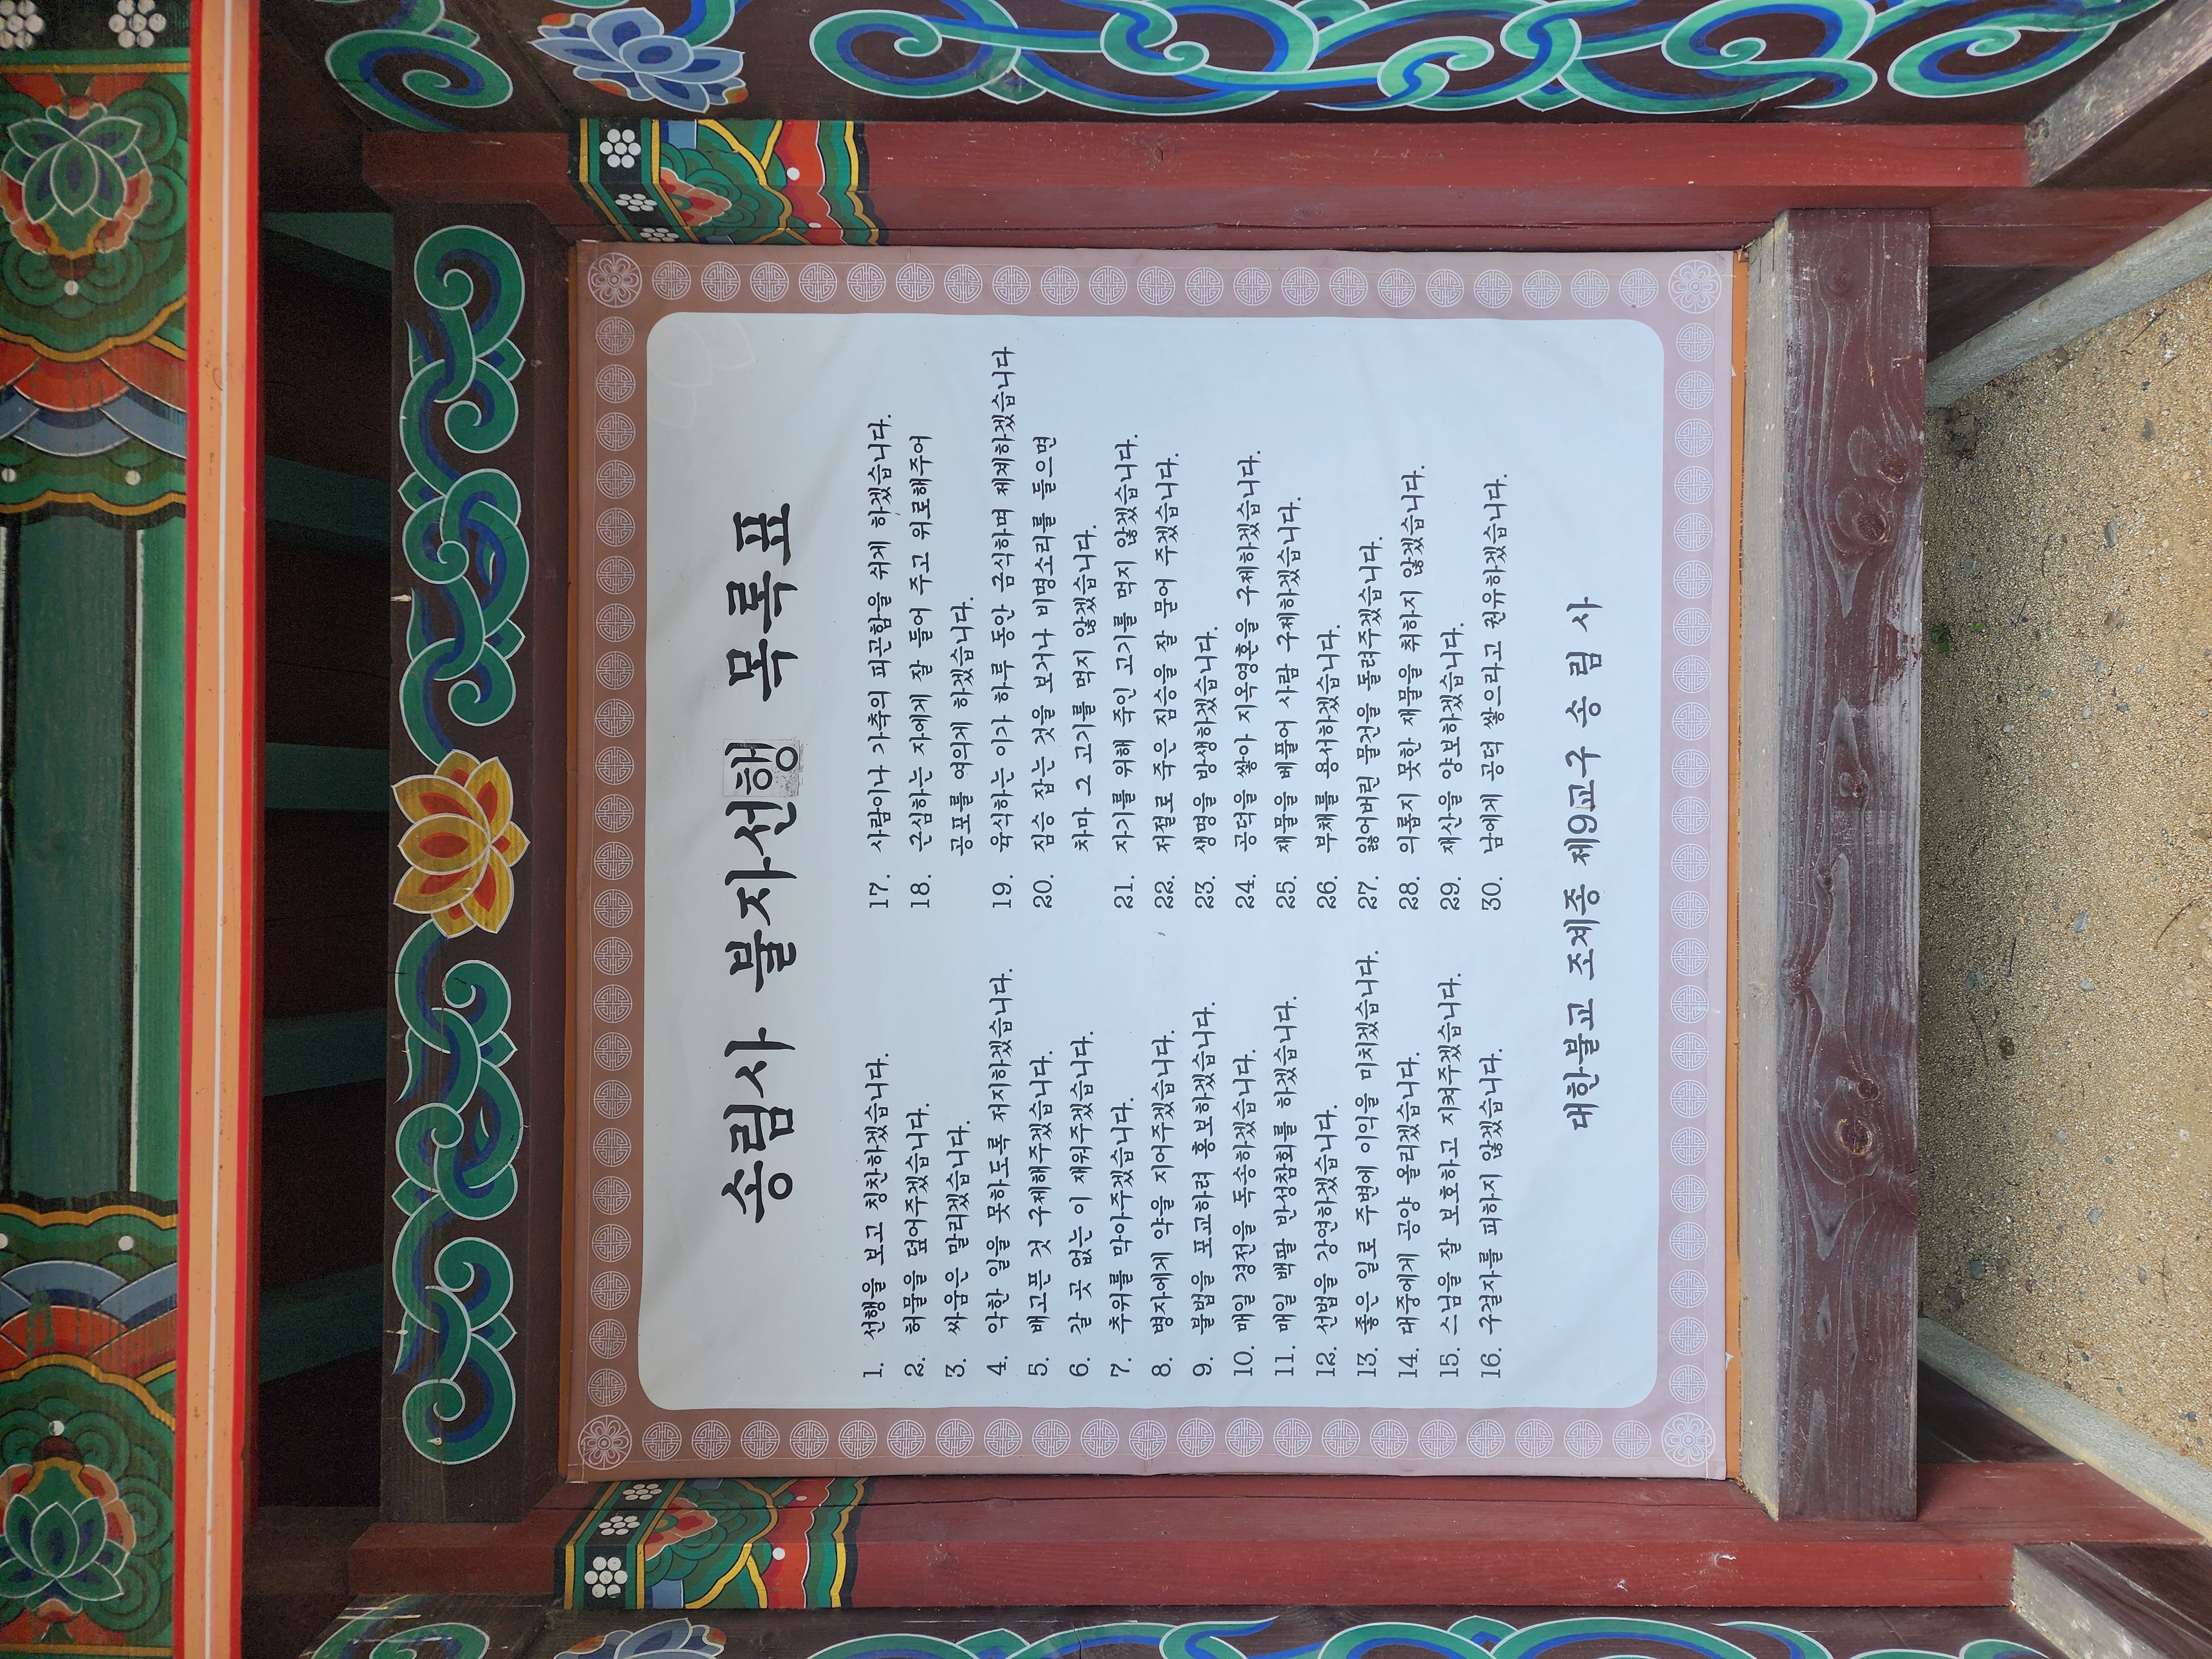 송림사 불자선행 목록표
1. 선행을 보고 칭찬하겠습니다.
2. 허물을 덮어주겠습니다.
3. 싸움은 말리겠습니다.
4. 악한 일을 못하도록 저지하겠습니다.
5. 배고픈 것 구제해주겠습니다.
6. 갈 곳 없는 이 재워주겠습니다.
7. 추위를 막아주겠습니다.
8. 병자에게 약을 지어주겠습니다.
9. 불법을 포교하려 홍보하겠습니다.
10. 매일 경전을 독송하겠습니다.
11. 매일 백팔 반성참회를 하겠습니다.
12. 선법을 강연하겠습니다.
13. 좋은 일로 주변에 이익을 미치겠습니다.
14. 대중에게 공양 올리겠습니다.
15. 스님을 잘 보호하고 지켜주겠습니다.
16. 구걸자를 피하지 않겠습니다.
17. 사람이나 가축의 피곤함을 쉬게 하겠습니다.
18. 근심하는 자에게 잘 들어 주고 위로해주어
공포를 여의게 하겠습니다.
19. 육식하는 이가 하루 동안 금식하며 제계하겠습니다
20. 짐승 잡는 것을 보거나 비명소리를 들으면
차마 그 고기를 먹지 않겠습니다.
21. 자기를 위해 죽인 고기를 먹지 않겠습니다.
22. 저절로 죽은 짐승을 잘 묻어 주겠습니다.
23. 생명을 방생하겠습니다.
24. 공덕을 쌓아 지옥영혼을 구제하겠습니다.
25. 재물을 베풀어 사람 구제하겠습니다.
26. 부채를 용서하겠습니다.
27. 잃어버린 물건을 돌려주겠습니다.
28. 의롭지 못한 재물을 취하지 않겠습니다.
29. 재산을 양보하겠습니다.
30. 남에게 공덕 쌓으라고 권유하겠습니다.
대한불교 조계종 제9교구 송 림 사